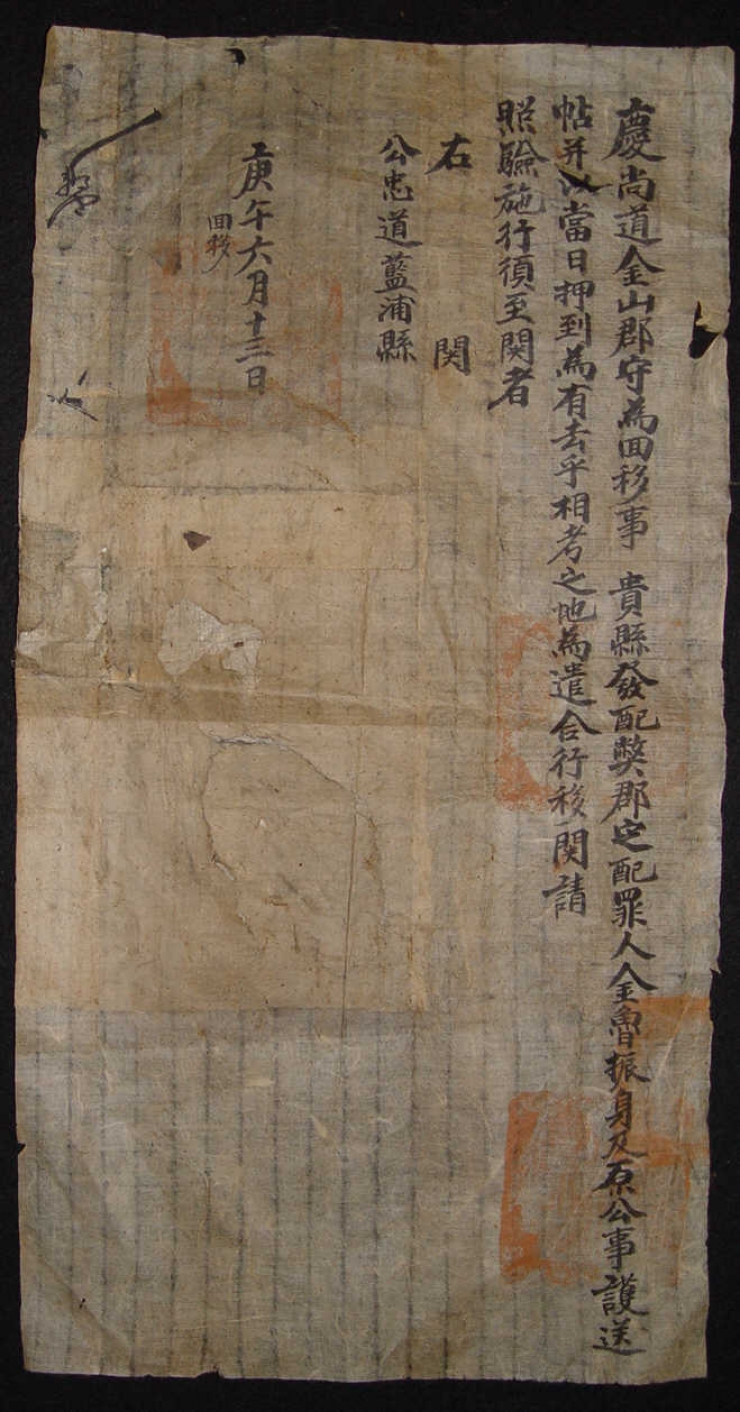 慶尚道金山郡守為回移事 貴縣發配弊郡定配罪人金魯振身及原公事護送
帖并以當日押到為有去乎相考之地為遣合行移関請
照驗施行須至関者
右 関
公忠道藍浦縣
庚午六月十三日
回移